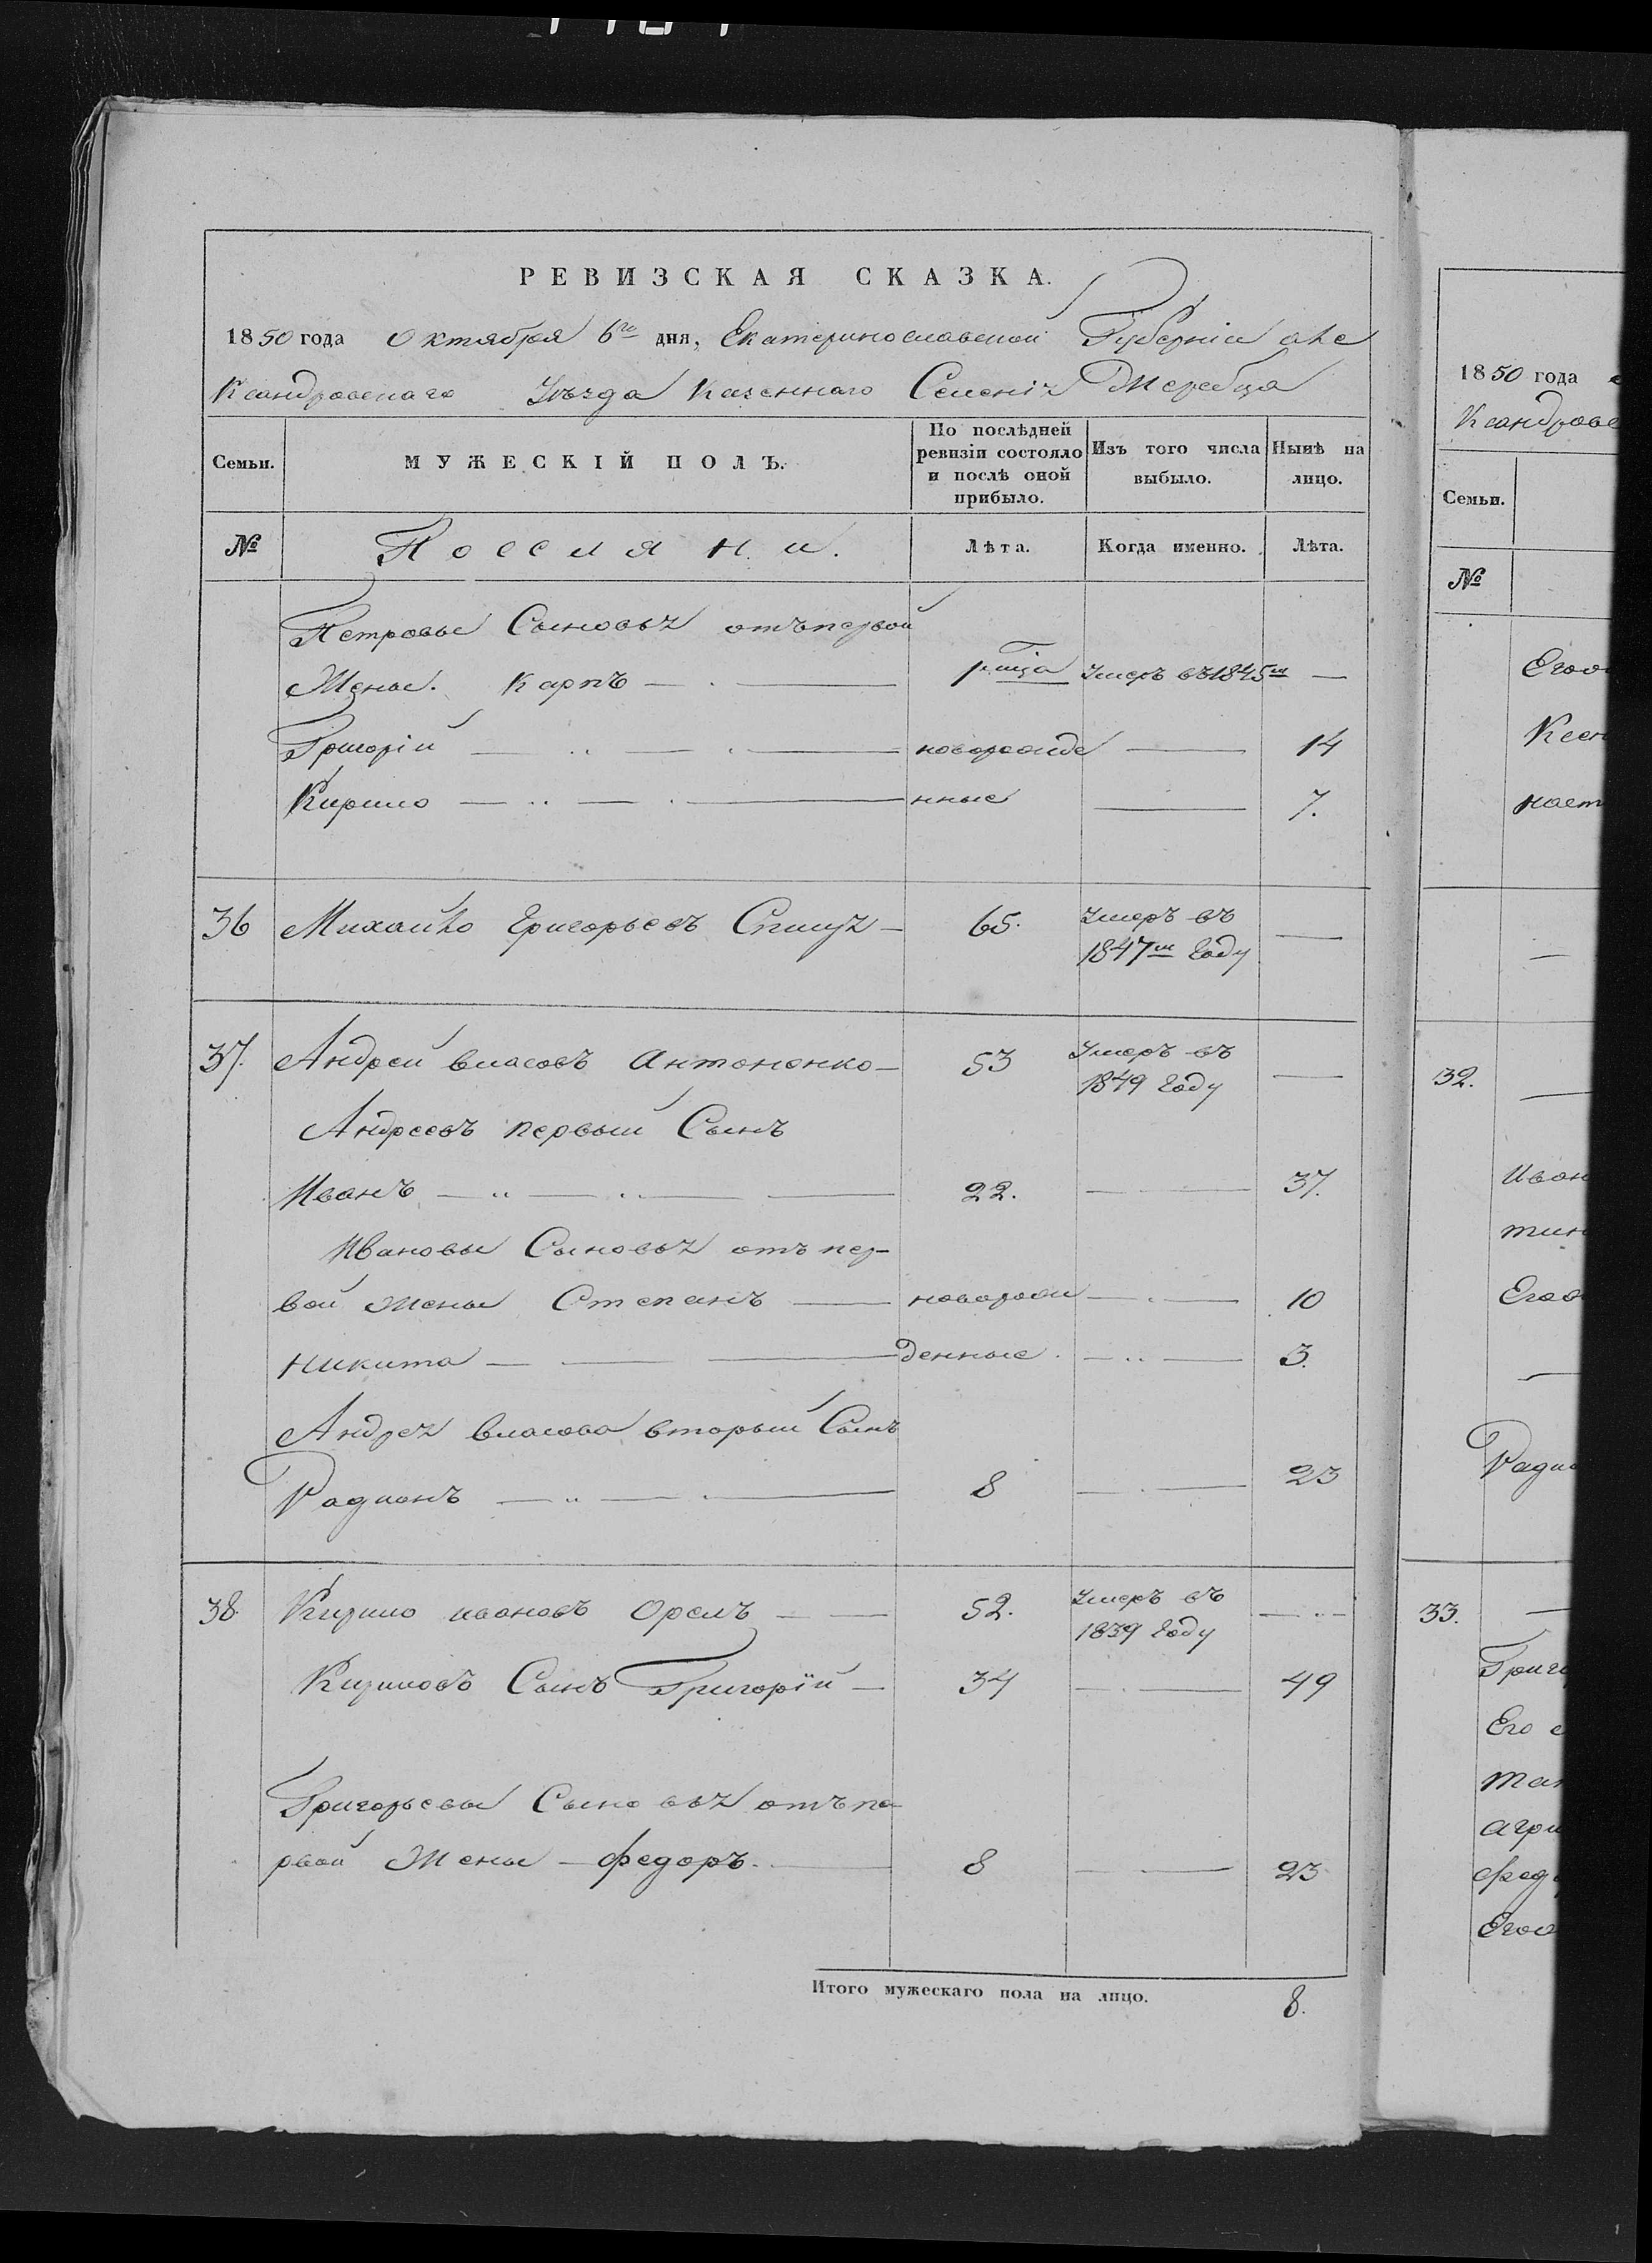 РЕВИЗСКАЯ СКАЗКА.
1850 года Октября 6го дня, Екатеринославской Губерніи але
ксандровскаго Уѣзда Казеннаго Селенія Жеребца
Семьи.
МУЖЕСКІЙ ПОЛЪ.
По послѣдней
ревизіи состояло
и послѣ оной
прибыло.
Изъ того числа
выбыло.
Нынѣ на
лицо.
№
Поселяни.
Лѣта.
Когда именно.
Лѣта.
Петровы Сыновья отъ первой
Жены. Карпъ — Умеръ въ 1845м —
Григорій — новорожде — 14
Кирило — нные — 7.
36 Михайло Григорьевъ — 65. Умеръ въ
1847м Году —
37. Андрей власовъ Антоненко — 53 Умеръ въ
1849 Году —
Андреевъ первый Сынъ
Иванъ — 22. — 37.
Ивановы Сыновья отъ пер-
вой жены Степанъ — новорож — 10
Никита — денные. — 3.
Андрея власова вторый Сынъ
Радионъ — 8 — 23
38. Кирило ивановъ Орелъ — 52. Умеръ въ
1839 Году —
Кириловъ Сынъ Григорій — 34 — 49
Григорьевы Сыновья отъ пе
рвой Жены — федоръ. — 8 — 23
Итого мужескаго пола на лицо. 8.
1850 года
Ксандровс
Семьи.
№
Его
Ксен
наст
32.
Иван
тин
Его
Ради
33.
Григ
Его с
Ма
агри
Фед
Его